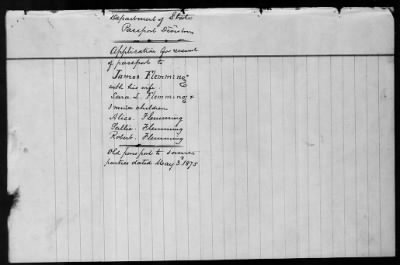 Department of State
Passport Division
Application for renewal
of passport to
James Flemming
with his wife
Sara L. Flemming &
3 minor children
Alice Flemming
Flemming
Robert Flemming
Old passport to same
parties dated May 3d 1875